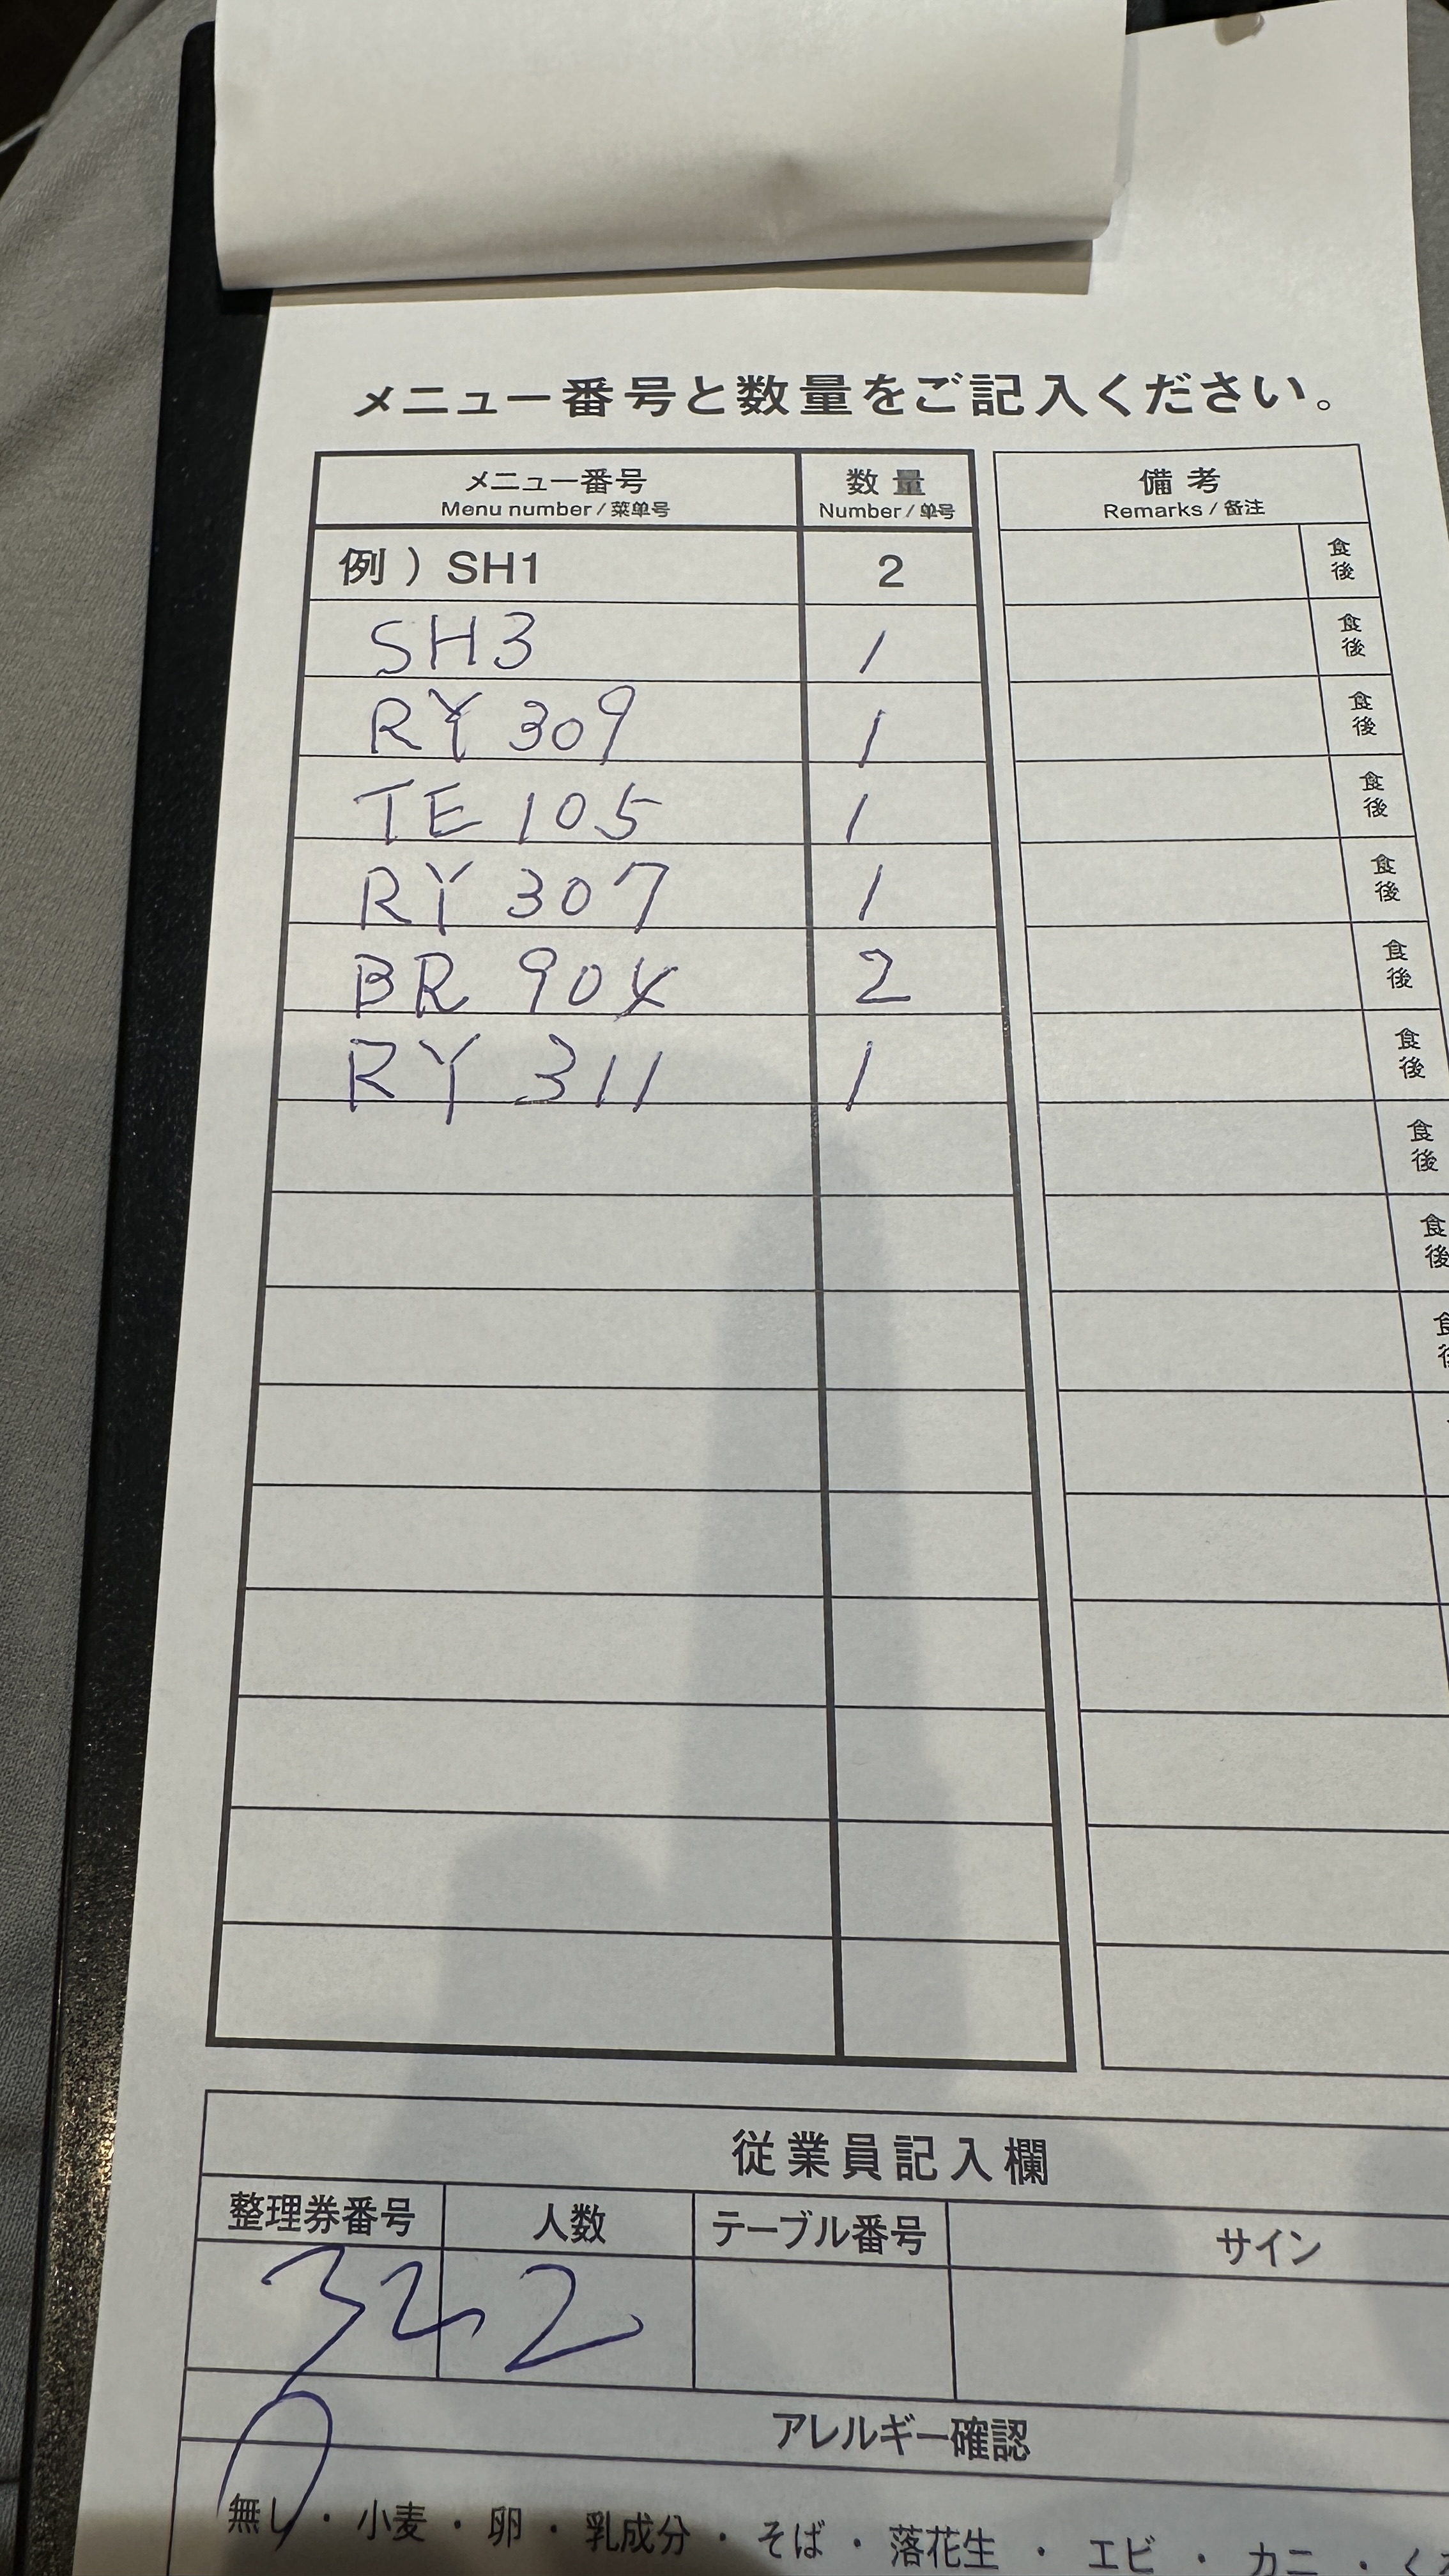 メニュー番号と数量をご記入ください。
メニュー番号 数量 備考
Menu number / 菜单号 Number / 单号 Remarks / 备注
例）SH1 2 食後
SH3 1 食後
RY 309 1 食後
TE 105 1 食後
RY 307 1 食後
BR 904 2 食後
RY 311 1 食後
食後
食後
従業員記入欄
整理券番号 人数 テーブル番号 サイン
32 2
アレルギー確認
無し・小麦・卵・乳成分・そば・落花生・エビ・カニ・く